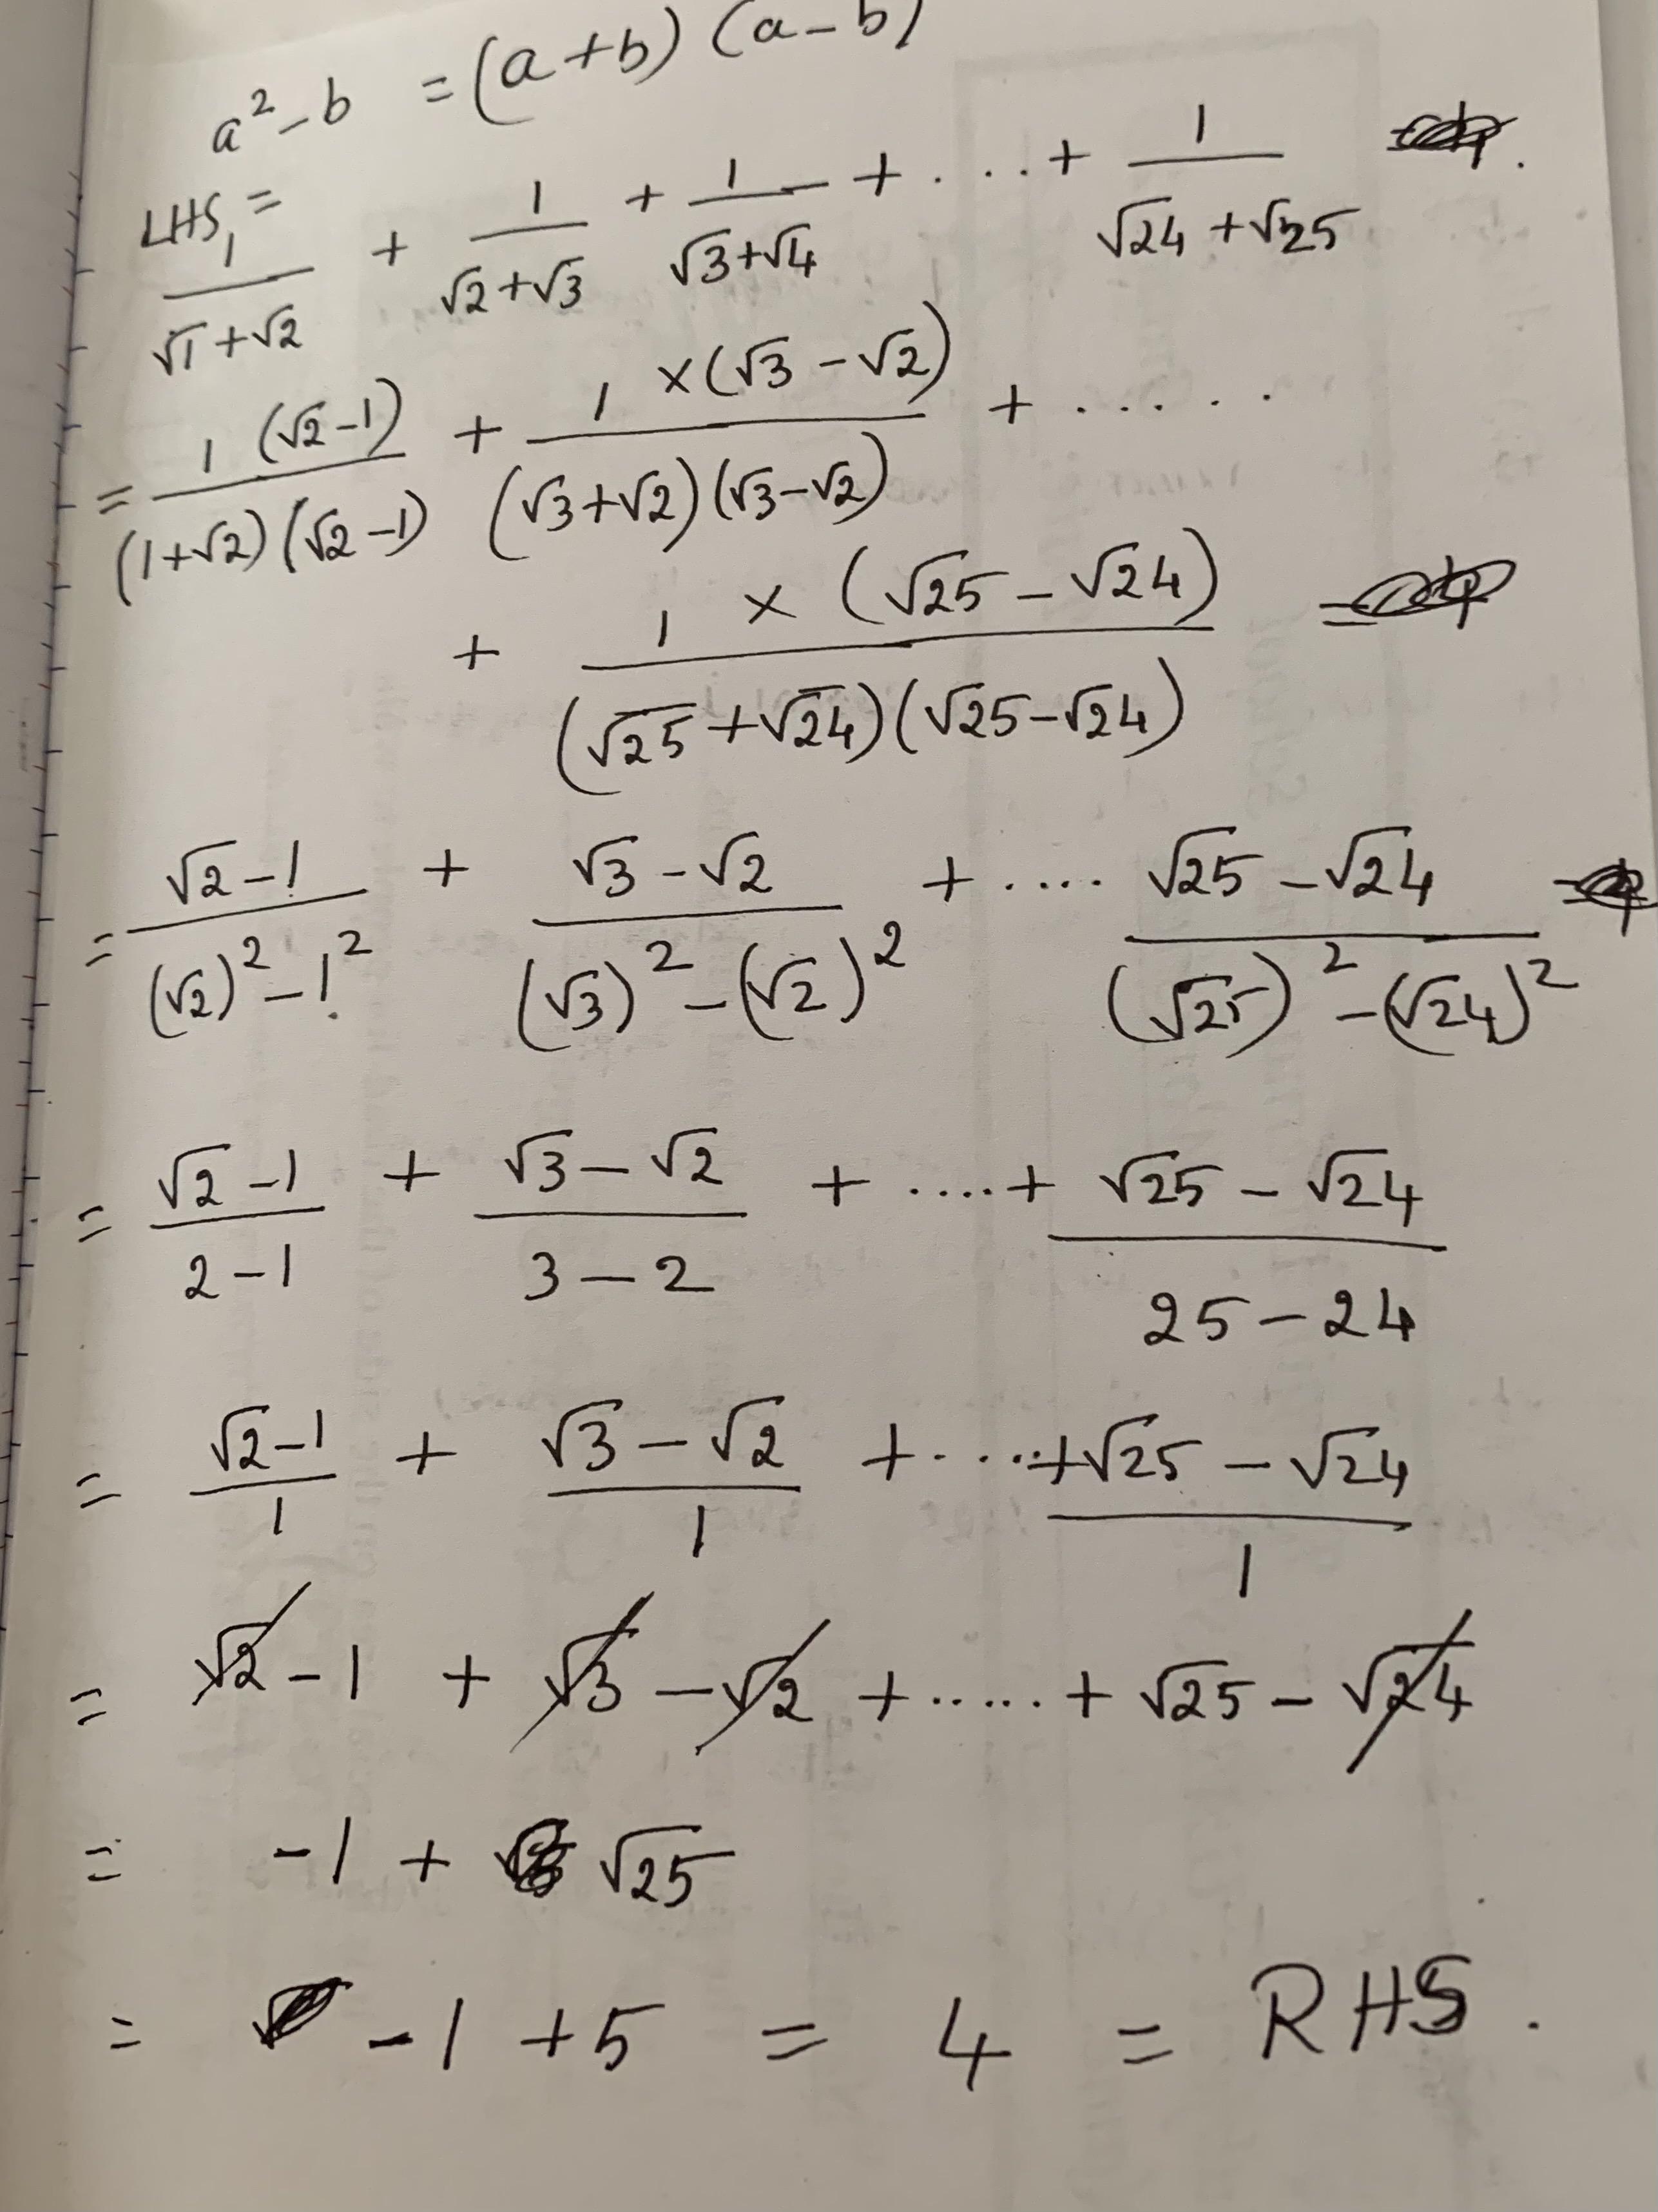 a² - b = (a+b) (a-b)
LHS =
1/(√1+√2) + 1/(√2+√3) + 1/(√3+√4) + ....+ 1/(√24+√25) .
= 1 (√2-1)/((1+√2)(√2-1)) + 1 ×(√3-√2)/((√3+√2)(√3-√2)) + .....
+ 1 × (√25-√24)/((√25+√24)(√25-√24))
= (√2-1)/((√2)²-1²) + (√3-√2)/((√3)²-(√2)²) + .... (√25-√24)/((√25)²-(√24)²)
= (√2-1)/(2-1) + (√3-√2)/(3-2) + ....+ (√25-√24)/(25-24)
= (√2-1)/1 + (√3-√2)/1 + ....+ (√25-√24)/1
= √2-1 + √3-√2 + ..... + √25-√24
= -1 + √25
= -1 +5 = 4 = RHS .